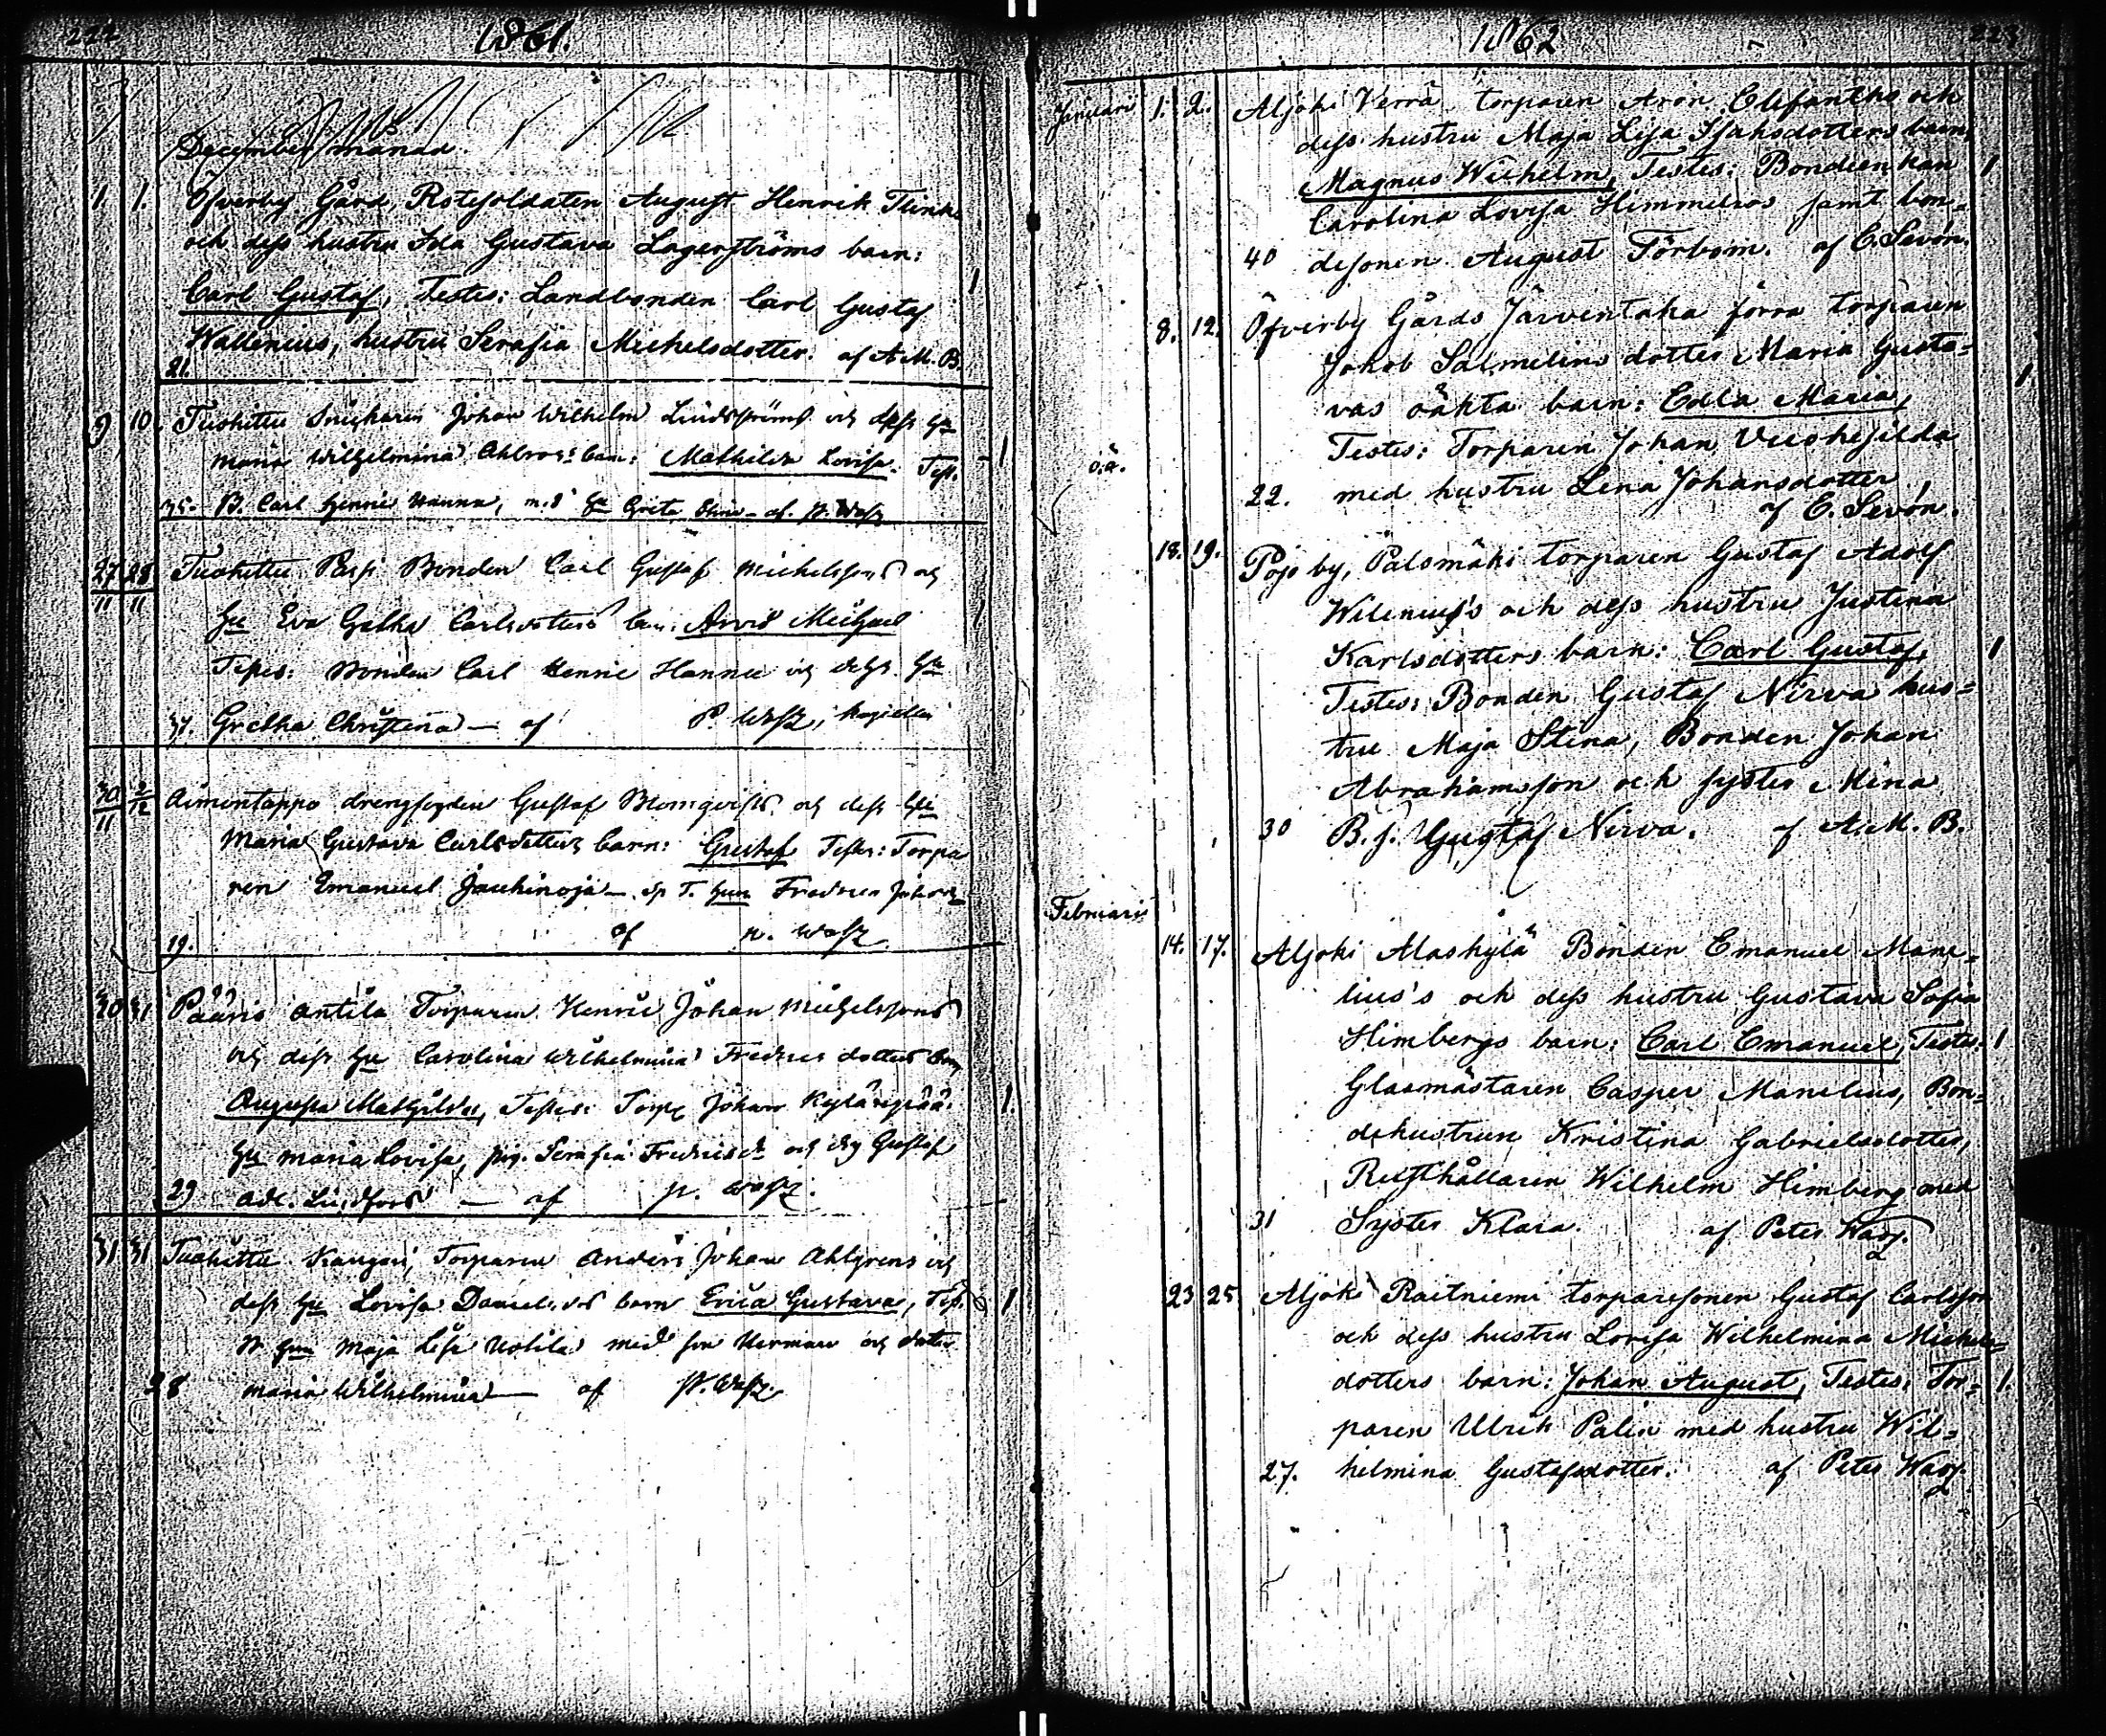 222
1861.
December månad.
1. 1. Öfverby Gård, Rotesoldaten August Henrik Flinks
och dess hustru Ida Gustava Lagerströms barn:
Carl Gustaf, Testes: Landbonden Carl Gustaf 1
Wallenius, hustru Serafia Michelsdotter. af A. M. B.
21.
9 10. Tuohittu Johan Wilhelm Lindströms och dess Hu
Maria Wilhelmina barn: Mathilda Lovisa. Test. 1
35. B. Carl Henric Hannu, m. d. Hu Greta af P. Wasz
27/11 28/11 Tuohittu Passi Bonden Carl Gustaf Michelssons och
Hu Eva Carlsdotters barn: Arvid Michael 1
Testes: Bonden Carl Henric Hannu och dess Hu
37. Gretha Christina — af P. Wasz, Capellan
30/11 2/12 Aimontappo Gustaf Blomqvists och dess Hu
Maria Gustava Carlsdotters barn: Gustaf Testes: Torpa
ren Emanuel Jauhinoja — Hun
19. af P. Wasz
30 31 Pääris Antila Torparen Henric Johan Michelssons
och dess Hu Carolina Wilhelmina Fredricsdotters barn
Augusta Mathilda, Testes: Torp Johan 1.
Hu Maria Lovisa, pig. Serafia Fredricsdr och Gustaf
29 Adl. Lindfors — af P. Wasz.
31 31 Tuohittu Torparen Anders Johan Ahlgrens och
dess Hu Lovisa barn Erica Gustava, Test 1
Hun Maja Lisa Uotila med son Herman och dotter
28 Maria Wilhelmina — af P. Wasz.
1862
223
Januari 1. 2. Aljoki Verrä torparen Aron Elefanths och
dess hustru Maja Lisa Isaksdotters barn,
Magnus Wilhelm, Testes: Bondeenkan 1
Carolina Lovisa Himmelros samt bon=
40 desonen August Törbom. af C. Sevón.
8. 12. Öfverby Gårds Järventaka förra torparen
Jakob Salmelins dotter Maria Gusta=
vas oäkta barn: Edla Maria, 1
o.ä. Testes: Torparen Johan
22. med hustru Lena Johansdotter,
af C. Sevón.
18. 19. Pojo by, Palomäki torparen Gustaf Adolf
Wilenius's och dess hustru Justina
Karlsdotters barn: Carl Gustaf, 1
Testes: Bonden Gustaf Nirva hus=
tru Maja Stina, Bonden Johan
Abrahamsson och syster Mina
30 B. s. Gustaf Nirva. af A. M. B.
Februari
14. 17. Aljoki Alaskylä Bonden Emanuel Mane=
lius's och dess hustru Gustava Sofia
Himbergs barn: Carl Emanuel, Testes: 1
Glasmästaren Casper Manelius, Bon=
dehustrun Kristina Gabrielsdotter,
Rusthållaren Wilhelm Himberg med
31 Syster Klara. af Peter Wasz.
23 25 Aljoki Raitniemi torparesonen Gustaf Carlsson
och dess hustru Lovisa Wilhelmina Michels=
dotters barn: Johan August, Testes: Tor= 1.
paren Ulrik Palin med hustru Wil=
27. helmina Gustafsdotter. af Peter Wasz.